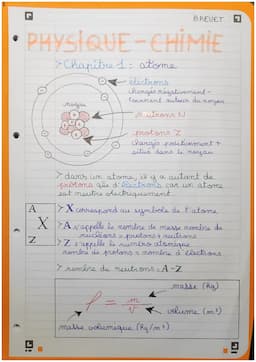 BREVET
PHYSIQUE-CHIMIE
> Chapitre 1 : atome
électrons
chargés négativement -
tournent autour du noyau
noyau
neutrons N
protons Z
chargés positivement +
situé dans le noyau
> dans un atome, il y a autant de
protons que d'électrons car un atome
est neutre électriquement
A
X
Z
> X correspond au symbole de l'atome
> A s'appelle le nombre de masse nombre de
nucléons = protons + neutrons
> Z s'appelle le numéro atomique
nombre de protons = nombre d'électrons
> nombre de neutrons = A - Z
masse (kg)
ρ = m
v
volume (m³)
masse volumique (kg/m³)